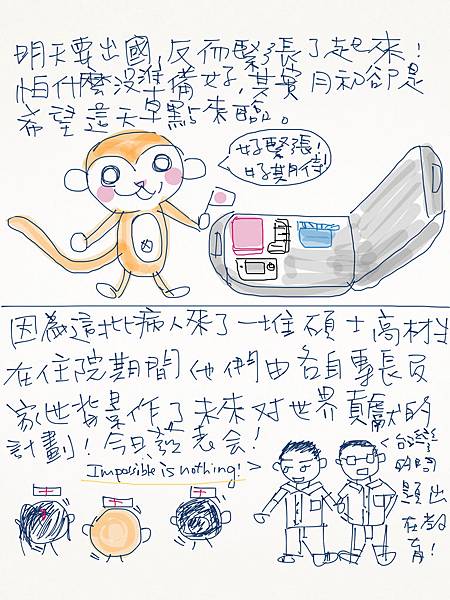 明天要出國,反而緊張了起來!
怕什麼沒準備好,其實月初卻是
希望這天早點來臨。
好緊張!
好期待
因為這批病人來了一堆碩士高材生
在住院期間他們由各自專長及
家世背景作了未來對世界貢獻的
計劃!今日發表会!
Impossible is nothing!
台灣
的問
題出
在教
育!